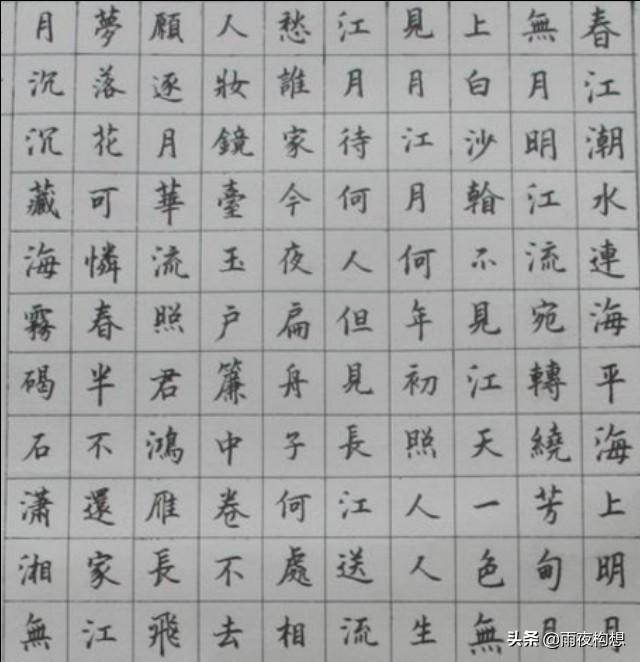 春江潮水連海平海上明月
無月明江流宛轉繞芳甸月
上白沙翰不見江天一色無
見月江月何年初照人人生
江月待何人但見長江送流
愁誰家今夜扁舟子何處相
人妝鏡臺玉戶簾中卷不去
願逐月華流照君鴻雁長飛
夢落花可憐春半不還家江
月沉沉藏海霧碣石瀟湘無
头条 @雨夜构想